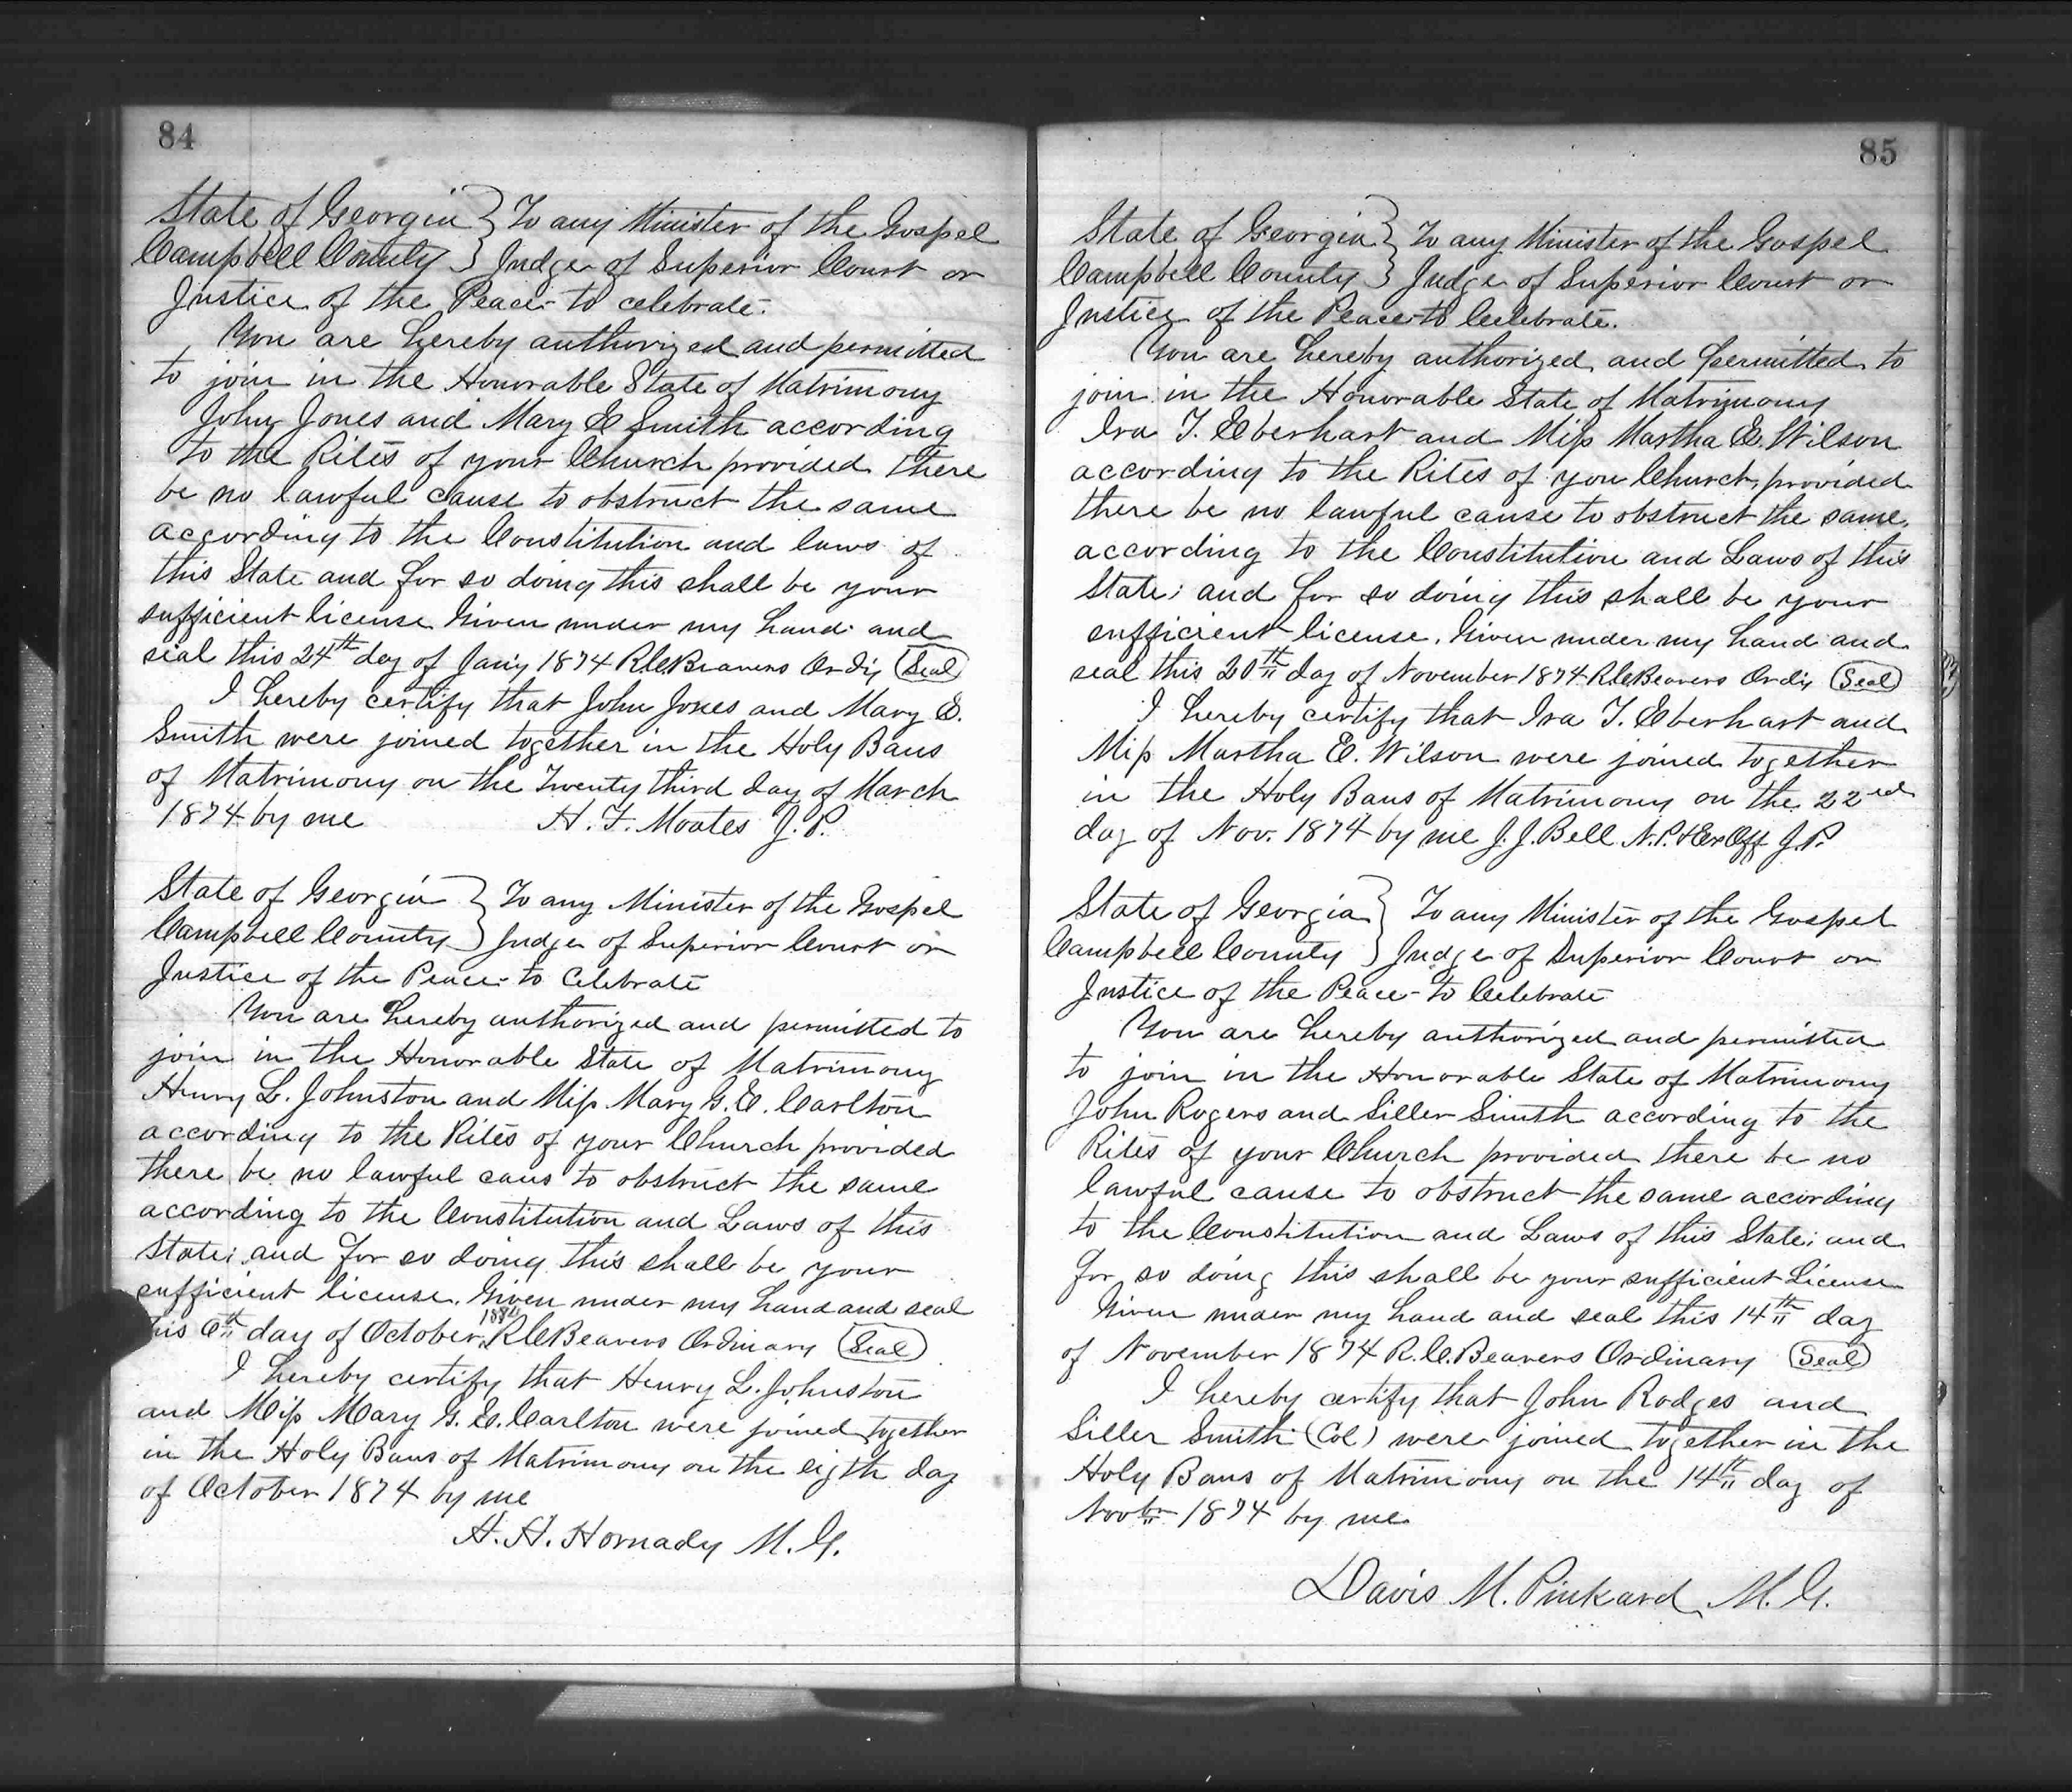 84
State of Georgia } To any Minister of the Gospel
Campbell County } Judge of Superior Court or
Justice of the Peace to celebrate.
You are hereby authorized and permitted
to join in the Honorable State of Matrimony
John Jones and Mary E Smith according
to the Rites of your Church provided there
be no lawful cause to obstruct the same
according to the Constitution and laws of
this State and for so doing this shall be your
sufficient license Given under my hand and
seal this 24th day of Jan'y 1874 R.C. Beavers Ord'y (Seal)
I hereby certify that John Jones and Mary E.
Smith were joined together in the Holy Bans
of Matrimony on the Twenty third day of March
1874 by me H. F. Moates J. P.
State of Georgia } To any Minister of the Gospel
Campbell County } Judge of Superior Court or
Justice of the Peace to Celebrate
You are hereby authorized and permitted to
join in the Honorable State of Matrimony
Henry L. Johnston and Miss Mary G. E. Carlton
according to the Rites of your Church provided
there be no lawful caus to obstruct the same
according to the Constitution and Laws of this
State; and for so doing this shall be your
sufficient license. Given under my hand and seal
this 6th day of October, R C Beavers Ordinary (Seal)
I hereby certify that Henry L. Johnston
and Miss Mary G. E. Carlton were joined together
in the Holy Bans of Matrimony on the eigth day
of October 1874 by me
H. H. Hornady M. G.
85
State of Georgia } To any Minister of the Gospel
Campbell County } Judge of Superior Court or
Justice of the Peace to Celebrate.
You are hereby authorized and permitted to
join in the Honorable State of Matrimony
Ira T. Eberhart and Miss Martha E. Wilson
according to the Rites of you Church, provided
there be no lawful cause to obstruct the same,
according to the Constitution and Laws of this
State; and for so doing this shall be your
sufficient license. Given under my hand and
seal this 20th day of November 1874 R C Beavers Ord'y (Seal)
I hereby certify that Ira T. Eberhart and
Miss Martha E. Wilson were joined together
in the Holy Bans of Matrimony on the 22nd
day of Nov. 1874 by me J. J. Bell N. P. & Ex Off J. P.
State of Georgia } To any Minister of the Gospel
Campbell County } Judge of Superior Court or
Justice of the Peace - to Celebrate
You are hereby authorized and permitted
to join in the Honorable State of Matrimony
John Rogers and Siller Smith according to the
Rites of your Church provided there be no
lawful cause to obstruct the same according
to the Constitution and Laws of this State; and
for so doing this shall be your sufficient License
Given under my hand and seal this 14th day
of November 1874 R. C. Beavers Ordinary (Seal)
I hereby certify that John Rodges and
Siller Smith (Col) were joined together in the
Holy Bans of Matrimony on the 14th day of
Novbr 1874 by me
Davis M. Pinkard M. G.